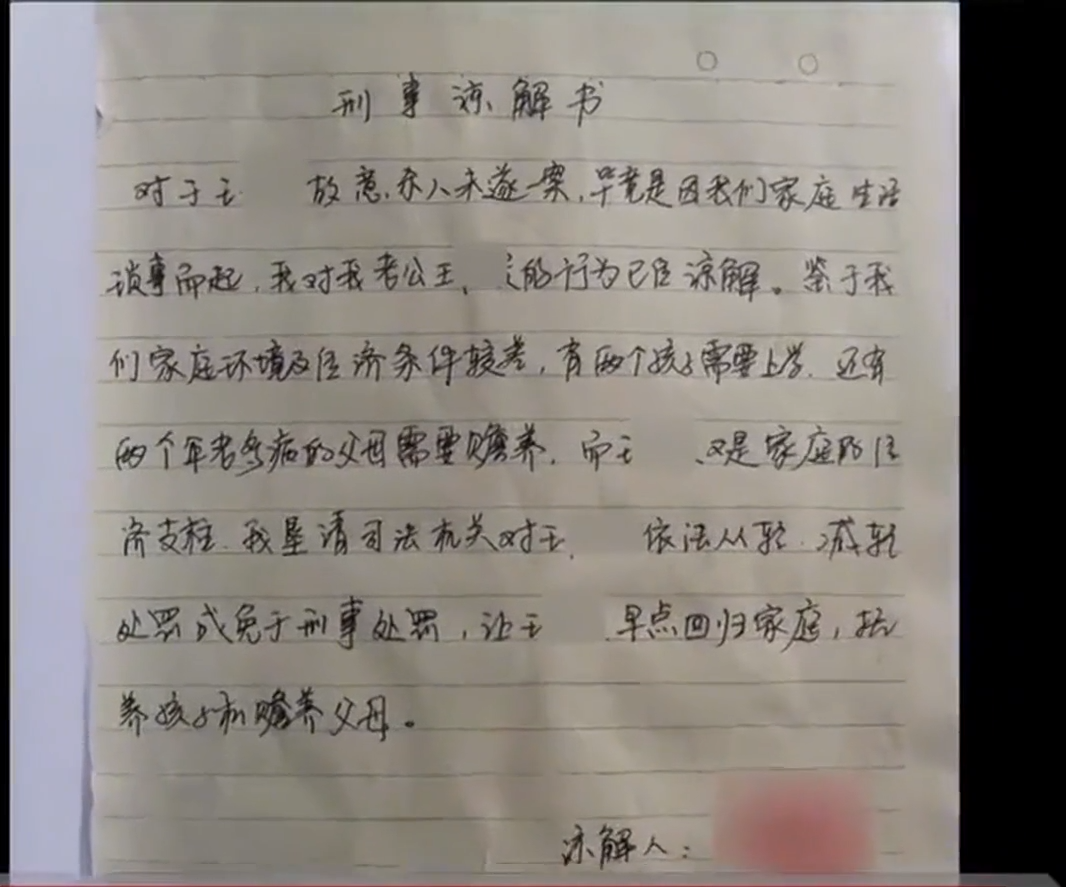 刑事谅解书
对于王 故意杀人未遂一案，毕竟是因我们家庭生活
琐事而起，我对我老公王 的行为已经谅解。鉴于我
们家庭环境及经济条件较差，有两个孩子需要上学，还有
两个年老多病的父母需要赡养，而王 又是家庭的经
济支柱，我垦请司法机关对王 依法从轻、减轻
处罚或免于刑事处罚，让王 早点回归家庭，抚
养孩子和赡养父母。
谅解人：